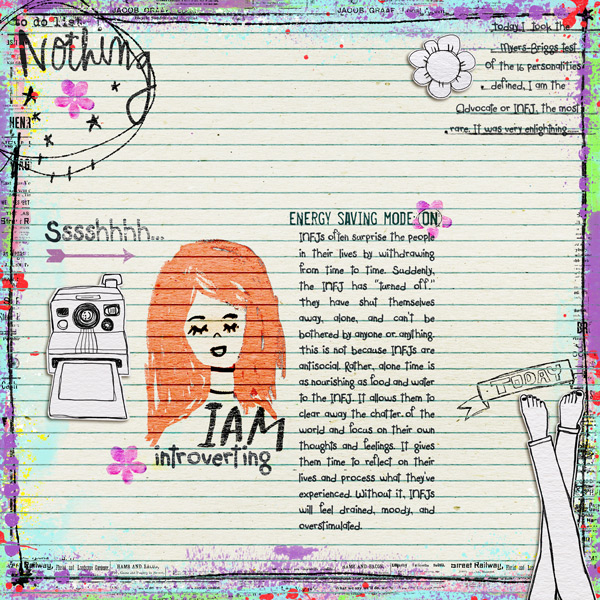 JACOB GRAAF
JACOB GRAAF
to do list
Nothing
today I took the
Myers-Briggs test
of the 16 personalities
defined, I am the
Advocate or INFJ, the most
rare. It was very enlightning.....
Sssshhhh...
ENERGY SAVING MODE: ON
INFJs often surprise the people
in their lives by withdrawing
from time to time. Suddenly,
the INFJ has "turned off."
They have shut themselves
away, alone, and can't be
bothered by anyone or anything.
This is not because INFJs are
antisocial. Rather, alone time is
as nourishing as food and water
to the INFJ. It allows them to
clear away the chatter of the
world and focus on their own
thoughts and feelings. It gives
them time to reflect on their
lives and process what they've
experienced. Without it, INFJs
will feel drained, moody, and
overstimulated.
I AM
introverting
TODAY
Railway,
HAMS AND BACON,
HAMS AND BACON,
Street Railway,